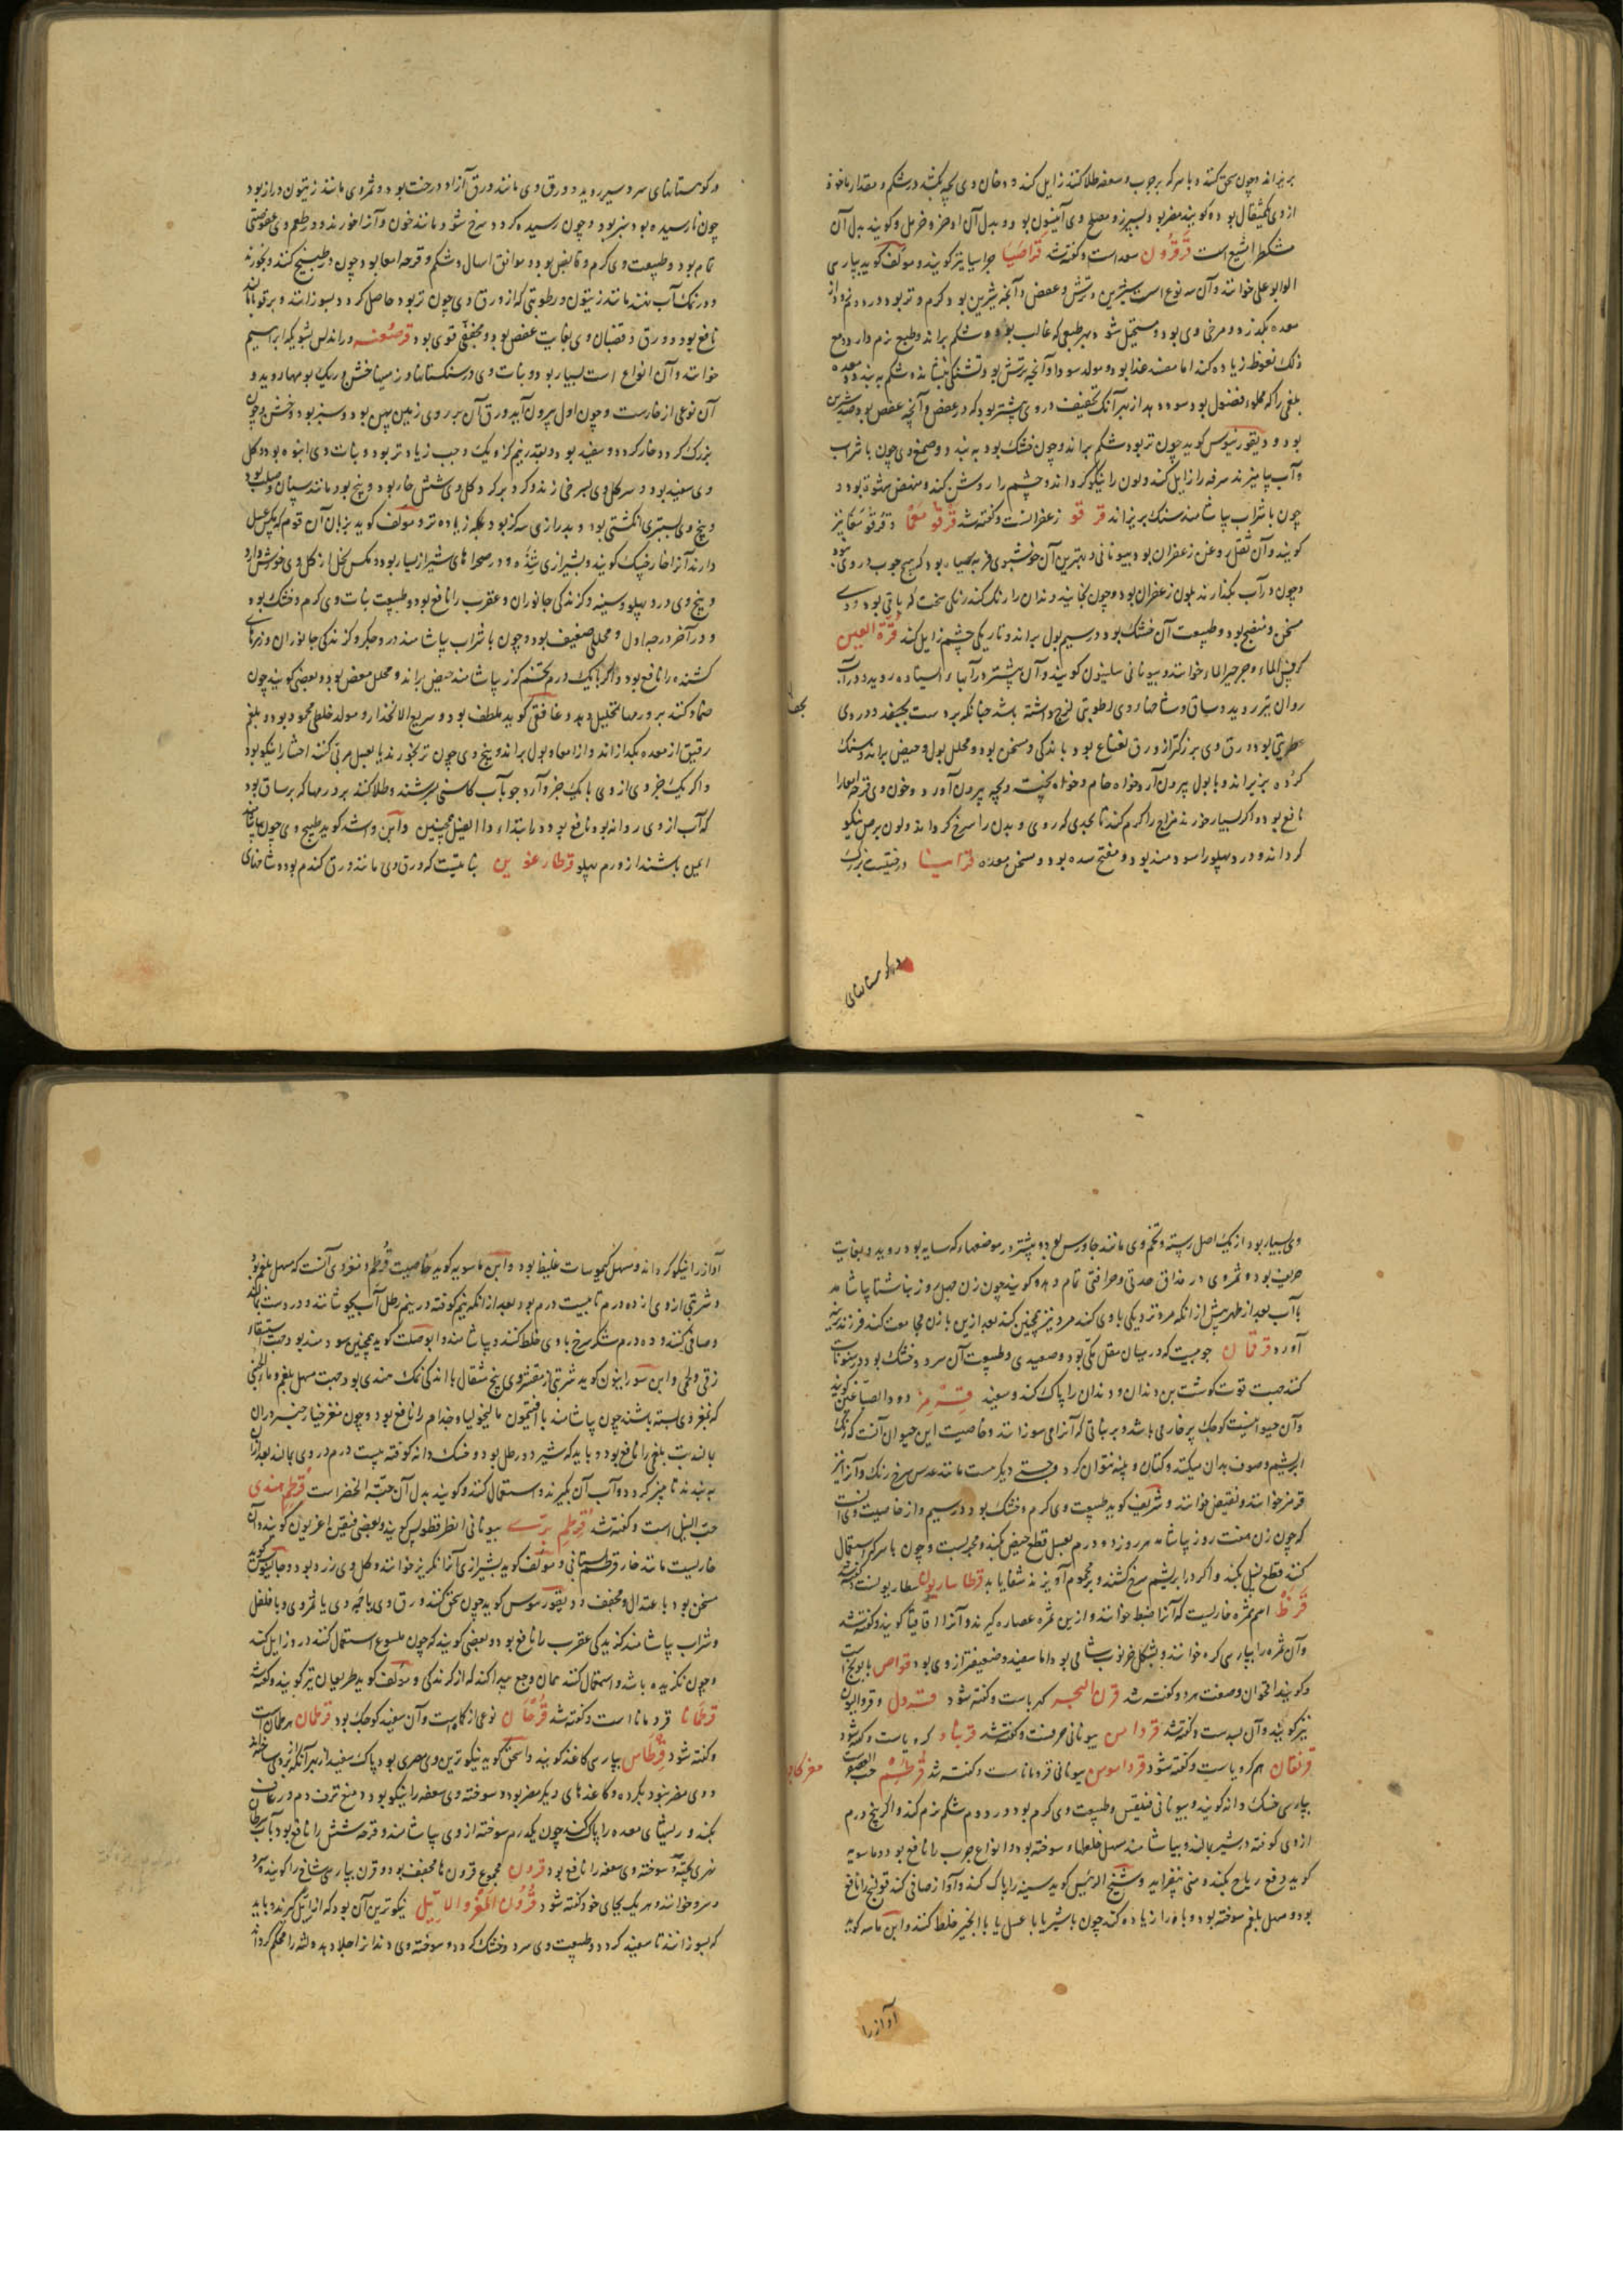 بریزاند و چون سحق کنند و با سرکه بر جرب و سعفه طلا کنند زایل کند و دخان وی بچه بکشد در شکم و مقدار ماخوذ
از وی یکمثقال بود و گویند مضر بود بسپرز و مصلح وی آنیسون بود و بدل آن اذخر و خرمل و گویند بدل آن
مشکطرامشیع است قرقرون سعد است و گفته شد قراصیا جراسیا نیز گویند و مولف گوید بپارسی
الوابوعلی خوانند و آن سه نوع است شیرین و ترش و عفص و آنچه شیرین بود گرم و تر بود در دوم و از
معده بگذرد و مرخی وی بود و مستحیل شود بهر طبعی که غالب بود و شکم براند و طبع نرم دارد و مع
ذلک نعوظ زیاده کند اما مفسد غذا بود و مولد سودا و آنچه ترش بود تشنگی بنشاند و شکم ببندد و معده
بلغمی را که مملو فضول بود سود دهد از بهر آنک تجفیف در وی بیشتر بود که در عفص و آنچه عفص بود ضد شیرین
بود و دیقوریدوس گوید چون تر بود شکم براند و چون خشک بود ببندد و صمغ وی چون با شراب
و آب بیامیزند سرفه را زایل کند و لون را نیکو گرداند و چشم را روشن کند و منهض شهوة بود و
چون با شراب بیاشامند سنگ بریزاند قرقو زعفرانست و گفته شد قرقومعما و قرقومغما نیز
گویند و آن ثفل روغن زعفران بود بیونانی و بهترین آن خوشبوی فربه سیاه بود که هیچ چوب در وی نبود
و چون در آب بگذارند بلون زعفران بود و چون بخایند دندان را رنگ کند رنگی سخت که باقی بود و وی
مسخن و منضج بود و طبیعت آن خشک بود در سیم بول براند و تاریکی چشم زایل کند قرة العین
کرفس الماء و جرجیر الماء خوانند و بیونانی سلینون گویند و آن بیشتر در آبهاء ایستاده روید و در آب
روان نیز روید و ساق و شاخهاء وی رطوبتی لزج داشته باشد چنانکه بر دست بچسفد و در وی
عطریتی بود و ورق وی بزرگتر از ورق نعناع بود باندکی و مسخن بود و محلل بول و حیض براند و سنگ
گرده بریزاند و با بول بیرون آرد خواه خام و خواه پخته و بچه بیرون آورد و خون وی قرحه امعا را
نافع بود و اگر بسیار خورند مزاج را گرم کند تا بحدی که روی و بدن را سرخ گرداند و لون برص نیکو
گرداند و درد پهلو را سودمند بود و مفتح سده بود و مسخن معده قراسیا درختیست بزرگ
در کوهستانهای
در کوهستانهای سردسیر روید و ورق وی مانند ورق آزاد درخت بود و ثمر وی مانند زیتون دراز بود
چون نارسیده بود سبز بود و چون رسیده گردد سرخ شود مانند خون و آنرا خورند و در طعم وی عفوصتی
تمام بود و طبیعت وی گرم و قابض بود و موافق اسهال و شکم و قرحه امعا بود چون در طبیخ کنند و بخورند
و در نمک آب نهند مانند زیتون و رطوبتی که از ورق وی چون تر بود حاصل گردد و بسوزانند و بر قوبا مالند
نافع بود و ورق و قضبان وی بغایت عفص بود و مجفف قوی بود قرصعنه در اندلس بشویکه ابراهیم
خوانند و آن انواع است بسیار بود و نبات وی در سنگستانها و زمینهاء خشن و ریگ بومها روید و
آن نوعی از خارست و چون اول بیرون آید ورق آن بر روی زمین پهن بود و سبز بود و خشن و چون
بزرگ گردد خار گردد و سفید بود و بقدر نیم گز و یک وجب زیادتر بود و نبات وی انبوه بود و گل
وی سفید بود و سر گل وی بسرخی زند و گرد بر گرد گل وی شش خار بود و پنج بود مانند سپنان و صلب بود
و بیخ وی بسطبری انگشتی بود و بدرازی سه گز بود و بلکه زیاده تر و مولف گوید بزبان آن قوم که مگس عسل
دارند آنرا خار خپک گویند و بشیرازی شنده و در صحراهای شیراز بسیار بود و مگس نحل از گل وی خورش دارد
و بیخ وی درد پهلو و سینه و گزندگی جانوران و عقرب را نافع بود و طبیعت نبات وی گرم و خشک بود
و در آخر درجه اول و محللی ضعیف بود و چون با شراب بیاشامند درد جگر و گزندگی جانوران و زهرهای
کشنده را نافع بود و اگر با یک درم تخم گزر بیاشامند حیض براند و محلل مغص بود و بعضی گویند چون
ضماد کنند بر ورمها تحلیل دهد و غافقی گوید ملطف بود و سریع الانحدار و مولد خلطی محمود بود و بلغم
رقیق از معده بگدازاند و از امعا و بول براند و بیخ وی چون تر بخورند یا بعسل مربی کنند احشا را نیکو بود
و اگر یک جزو از وی با یک جزو آرد جو بآب کاسنی بسرشند و طلا کنند بر ورمها که بر ساق بود
که آب از وی روانه بود نافع بود در ابتداء داء الفیل همچنین و ابن واشد گوید طبیخ وی چون بیاشامند
ایمن باشند از ورم پهلو قرطارغونین نباتیست که ورق وی مانند ورق گندم بود و شاخهای
وی بسیار بود از یک اصل رسته و تخم وی مانند جاورس بود و بیشتر در موضعهاء که سایه بود روید و بغایت
حریف بود و ثمر وی در مذاق حدتی و حرافتی تمام دهد و گویند چون زن چهل روز بناشتا بیاشامد
با آب بعد از طهر پیش از انکه مرد نزدیکی با وی کند مرد نیز همچنین کند بعد ازین با زن مجامعت کند فرزند نرینه
آورد قرقان جوبیست که در میان مقل مکی بود و صعیدی و طبیعت آن سرد و خشک بود در سنونات
کنند جهت قوت گوشت بن دندان و دندان را پاک کند و سفید قرمز دود الصباغین گویند
و آن حیوانیست کوچک بر خار می باشد و بر نباتی که آنرا می سوزانند و خاصیت این حیوان آنست که رنگ
ابریشم و صوف بدان میکنند و کتان و پنبه نتوان کرد و جنسی دیگر هست مانند عدس سرخ رنگ و آنرا نیز
قرمز خوانند و نقیض خوانند و شریف گوید طبیعت وی گرم و خشک بود در سیم و از خاصیت وی آنست
که چون زن هفت روز بیاشامد هر روز دو درم بعسل قطع حیض بکند و مجربست و چون با سرکه استعمال
کنند قطع نسل بکند و اگر در ابریشم سرخ کشند و بر محموم آویزند شفا یابد قرطاساریون سطاریونست و گفته شد
قرظ اسم ثمره خاریست که آنرا ضبط خوانند و ازین ثمره عصاره گیرند و آنرا اقاقیا گویند و گفته شد
و آن ثمره را بپارسی کره خوانند و بشکل خرنوب شامی بود اما سفید و ضعیفتر از وی بود قراص بابونج است
و گویند اقحوان و صفت هر دو گفته شد قرن البحر کهرباست و گفته شود قرول و قروالیون
نیز گویند و آن بسدست و گفته شد قرداس بیونانی حرفست و گفته شد قرنباد کرویاست و گفته شود
قرنقان هم کرویاست و گفته شود قرداموس بیونانی قردماناست و گفته شد قرطم حب العصفرست
بپارسی خسک دانه گویند و بیونانی قنیقس و طبیعت وی گرم بود در دوم شکم نرم کند و اگر پنج درم
از وی کوفته در شیر بمالند و بیاشامند مسهل خلطهاء سوخته بود و انواع جرب را نافع بود و ماسویه
گوید دفع ریاح بکند و منی بیفزاید و شیخ الرئیس گوید سینه را پاک کند و آواز صافی کند قولنج را نافع
بود و مسهل بلغم سوخته بود و باه را زیاده کند چون با شیر یا با عسل یا با انجیر خلط کنند و ابن ماسه گوید
آواز را
آواز را نیکو گرداند و مسهل کیموسات غلیظ بود و ابن ماسویه گوید خاصیت قرطم و مغز وی آنست که مسهل بلغم بود
و شربتی از وی از ده درم تا بیست درم بود بعد از انکه نیم کوفته در نیم رطل آب بجوشانند و در دست بمالند
و صافی کنند و ده درم شکر سرخ با وی خلط کنند و بیاشامند و ابو صلت گوید همچنین سودمند بود جهت استسقاء
زقی و لحمی و ابن سرابیون گوید شربتی از مقشر وی پنج مثقال با اندکی نمک هندی بود جهت مسهل بلغم و ماء الجبن
که بمغز وی بسته باشند چون بیاشامند با افتیمون مالیخولیا و جذام را نافع بود و چون مغز خیار چنبر در آن
بمالند تب بلغمی را نافع بود و باید که شیر دو رطل بود و خسک دانه کوفته بیست درم در وی بمالند بعد از آن
ببندند تا پنیر گردد و آب آن بگیرند و استعمال کنند و گویند بدل آن حبة الخضرا است قرطم هندی
حب النیل است و گفته شد قرطم بری بیونانی انطرقطولس گویند و بعضی قنیقس اغریون گویند و آن
خاریست مانند خار قرطم بستانی و مولف گوید بشیرازی آنرا نکریز خوانند و گل وی زرد بود و جالینوس گوید
مسخن بود باعتدال و مجفف و دیقوریدوس گوید چون سحق کنند ورق وی یا جمه وی یا ثمر وی و با فلفل
و شراب بیاشامند گزیدگی عقرب را نافع بود و بعضی گویند که چون ملسوع استعمال کند درد زایل کند
و چون نگزیده باشد و استعمال کند همان وجع پیدا کند که از گزندگی و مولف گوید طریعان نیز گویند و گفته شد
قرطمانا قردمانا است و گفته شد قرحان نوعی از کماه است و آن سفید کوچک بود قرطمان هرطمان است
و گفته شود قرطاس بپارسی کاغذ گویند و اسحق گوید نیکوترین وی مصری بود پاک سفید از بهر آنکه از بردی ساخته
و وی مضر نبود بگرده و کاغذهای دیگر مضر بود و سوخته وی سعفه را نیکو بود و منع نزف دم و رعاف
بکند و ریشهای معده را پاک کند چون یکدرم سوخته از وی بیاشامند و قرحه شش را نافع بود با آب سرطان
نهری پخته و سوخته وی سعفه را نافع بود قرون مجموع قرون ها مجفف بود و قرن بپارسی شاخ را گویند و
سرو خوانند و هر یک بجای خود گفته شود قرون المعز و الایل نیکوترین آن بود که از ایل گیرند و باید
که بسوزانند تا سفید گردد و طبیعت وی سرد و خشک گردد و سوخته وی دندانرا جلا دهد و لثه را محکم گرداند